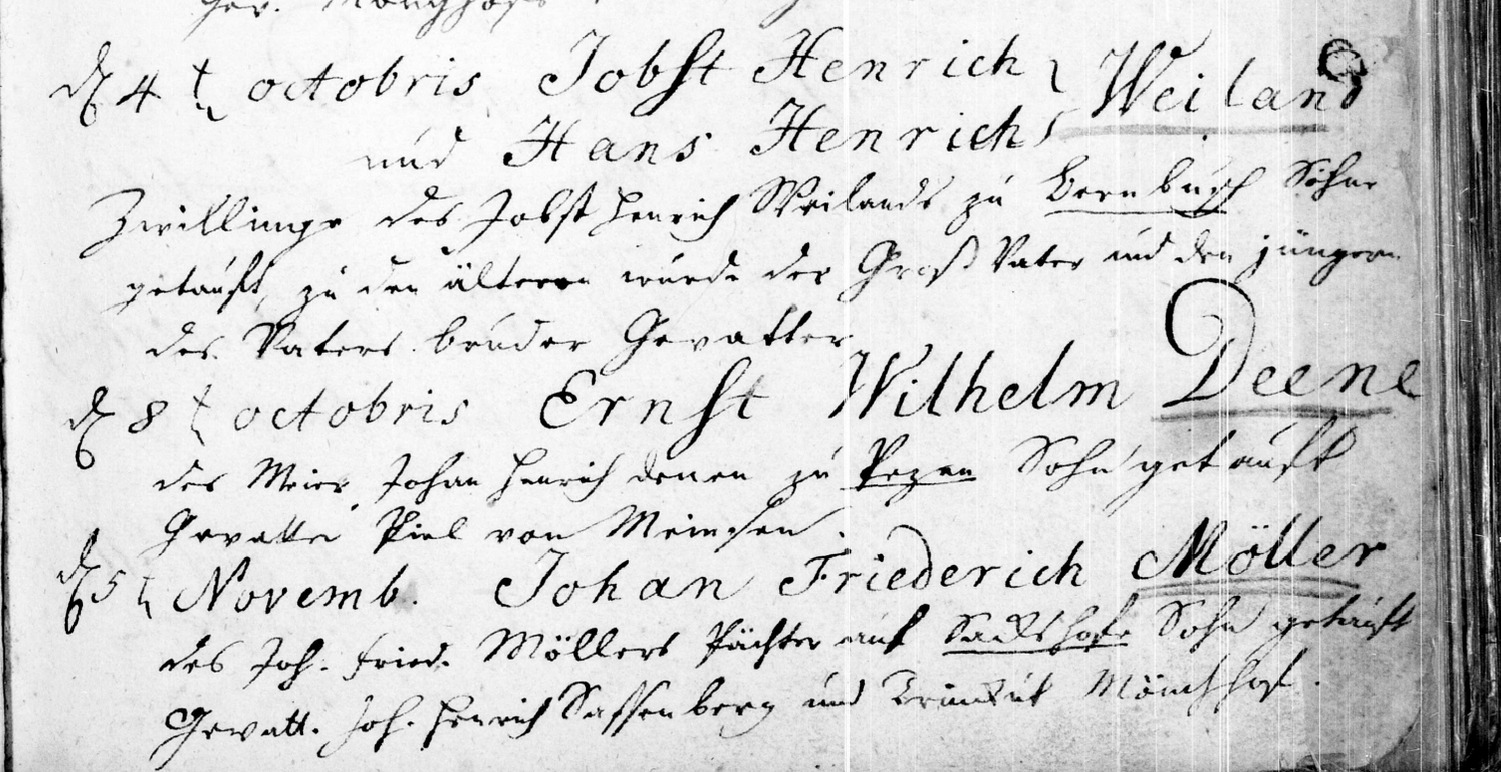 Gev. Mönchhof
d 4t octobris Jobst Henrich Weiland
und Hans Henrich
Zwillinge des Jobst Henrich Weilands zu Bernbusch Söhne
getauft, zu den älteren wurde der Groß Vater und den jüngern
des Vaters bruder Gevatter
d 8t octobris Ernst Wilhelm Deene
des Meier Johan Henrich denen zu Pezen Sohn getauft
Gevatter Piel von Meinsen.
d 5t Novemb. Johan Friederich Möller
des Joh. Fried. Möllers Pächter auf Sachshofe Sohn getauft
Gevatt. Joh. Henrich Sassenberg und Mönchhof.